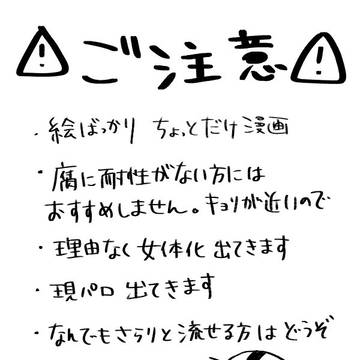 ご注意
・絵ばっかり ちょっとだけ漫画
・腐に耐性がない方には
おすすめしません。キョリが近いので
・理由なく女体化 出てきます
・現パロ 出てきます
・なんでもさらりと流せる方は どうぞ